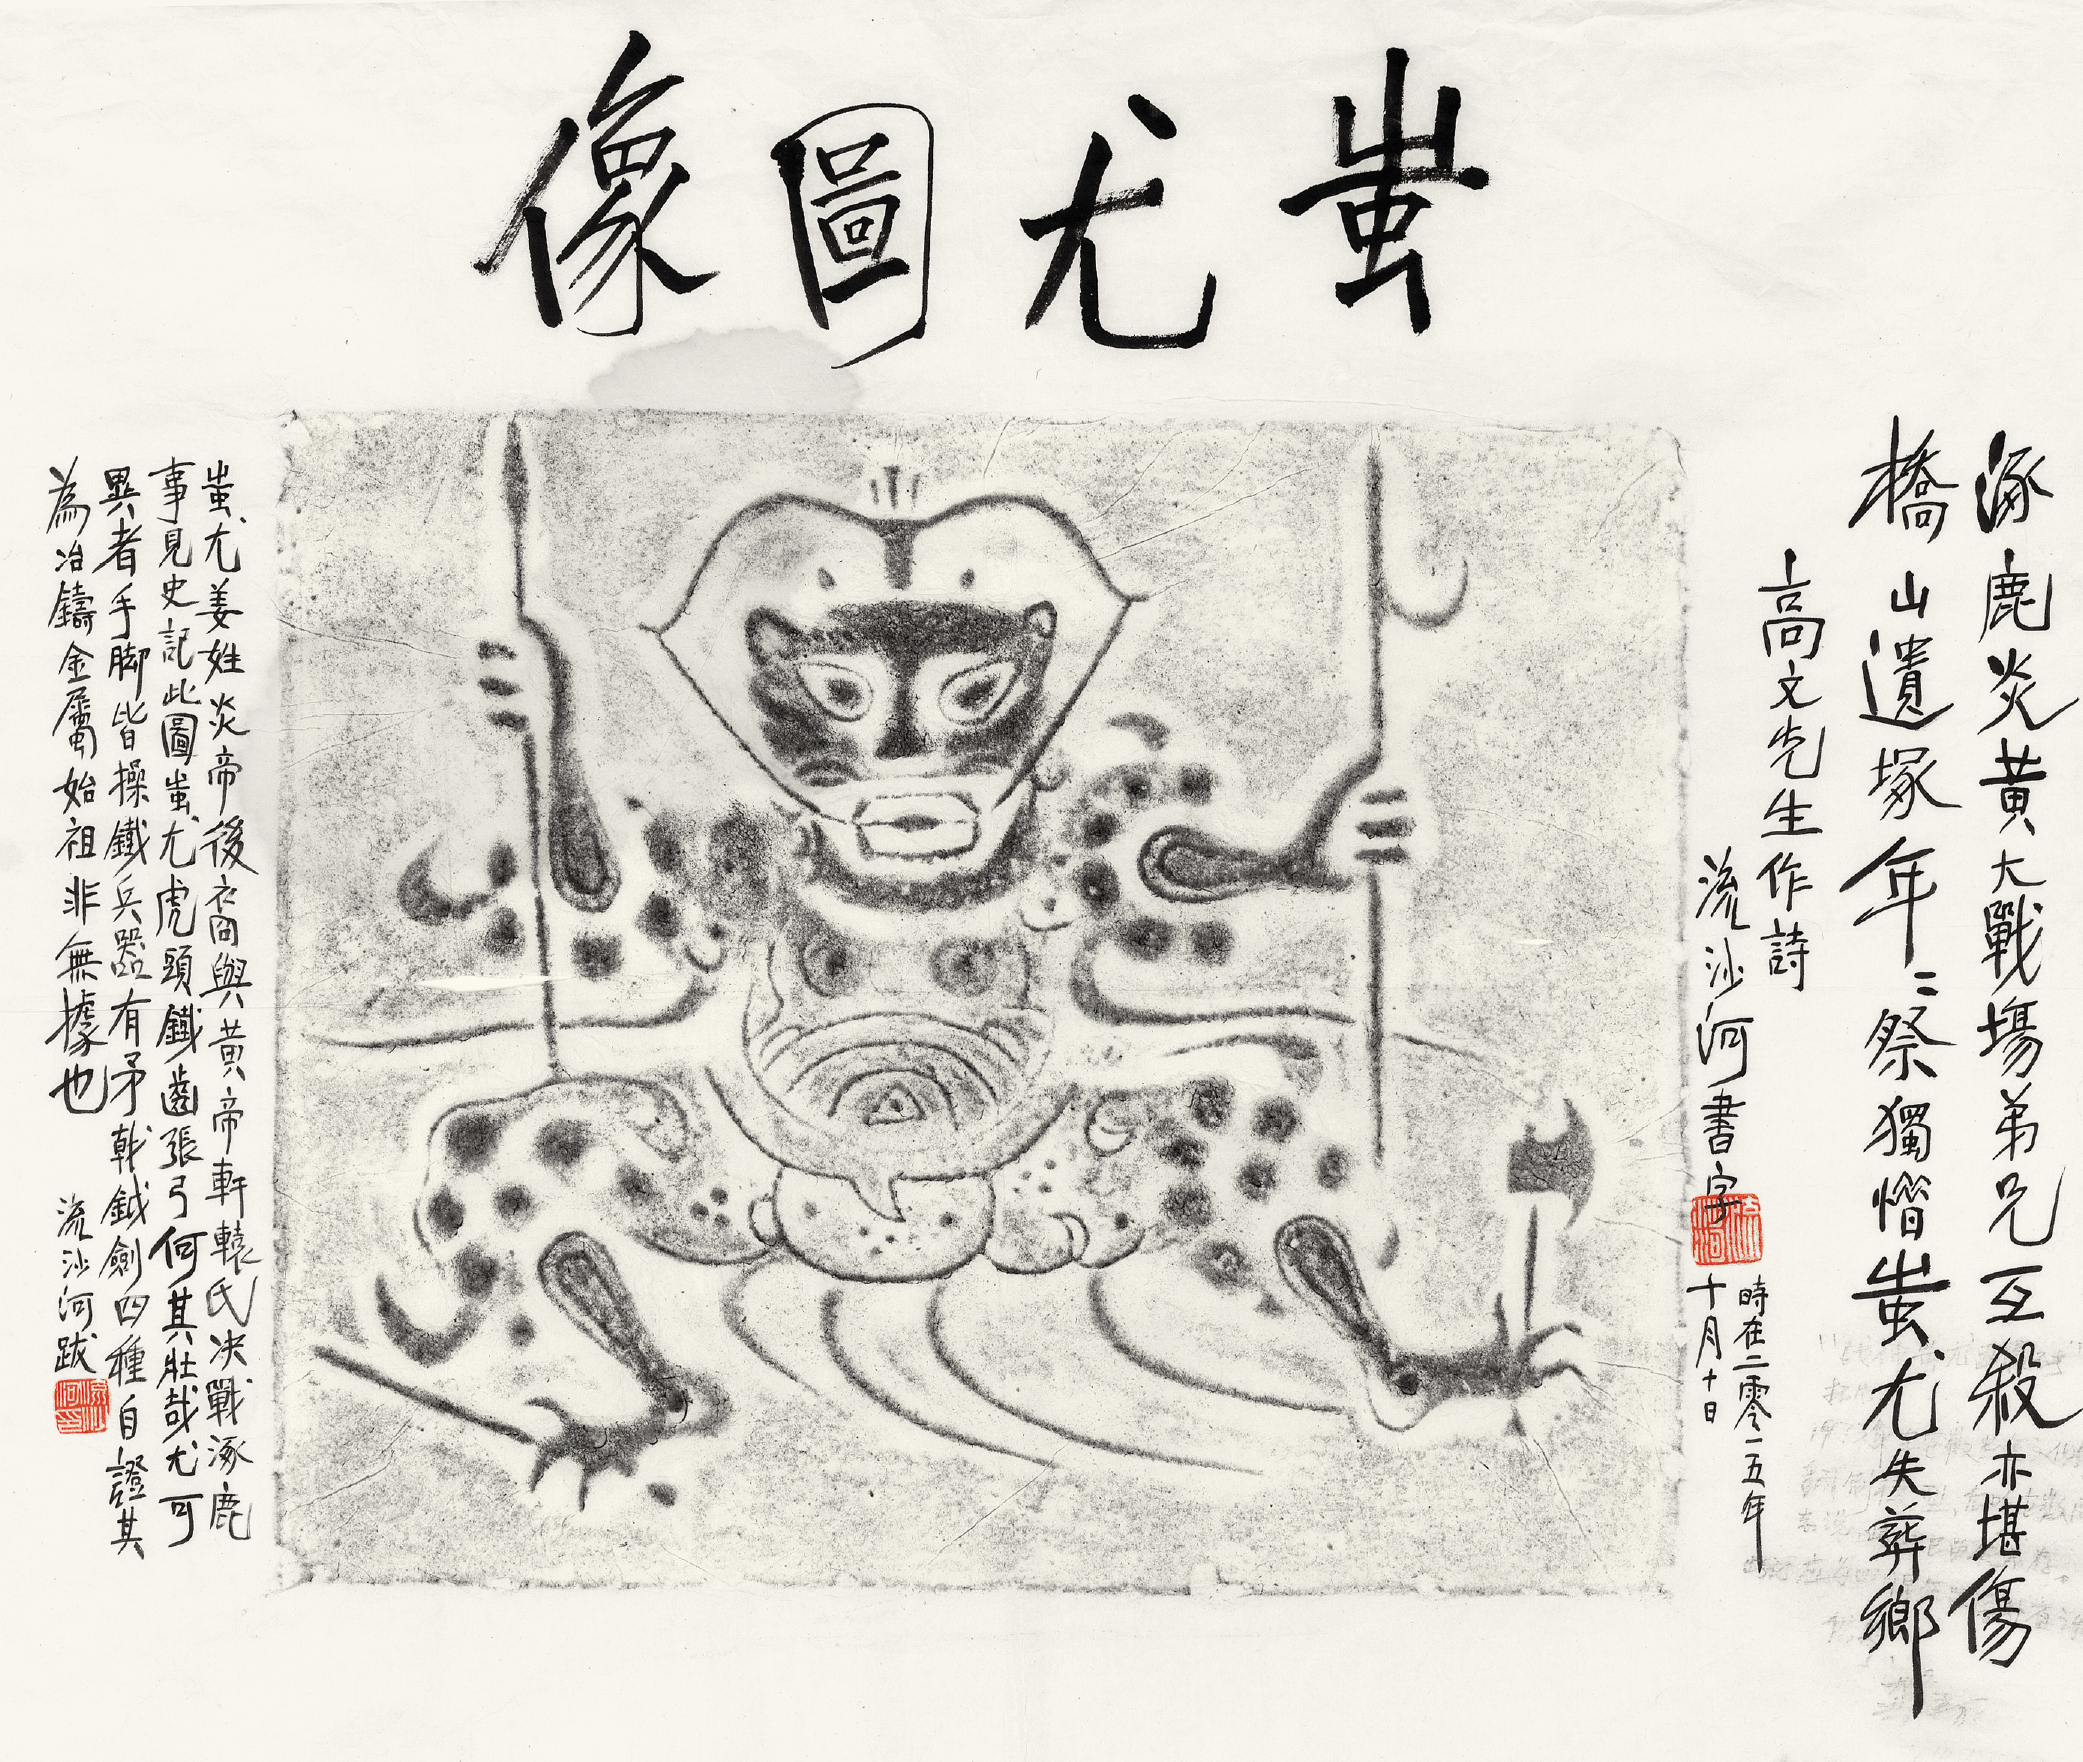 蚩尤圖像
涿鹿炎黃大戰場弟兄互殺亦堪傷
橋山遺塚年〻祭獨惜蚩尤失葬鄉
高文先生作詩
流沙河書字
時在二零一五年
十月十日
蚩尤姜姓炎帝後裔與黃帝軒轅氏决戰涿鹿
事見史記此圖蚩尤虎頭鐵齒張弓何其壯哉尤可
異者手脚皆操鐵兵器有矛戟鉞劍四種自證其
為冶鑄金屬始祖非無據也
流沙河跋